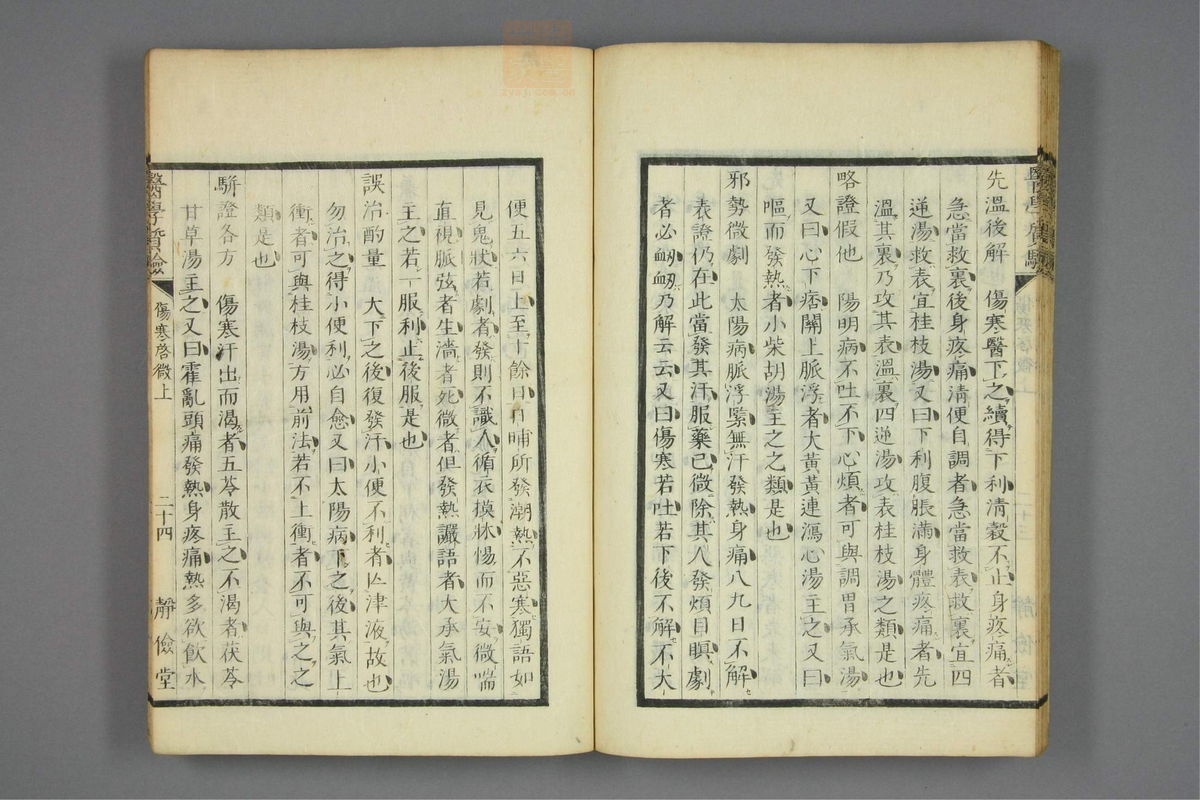 先溫後解　傷寒醫下之續得下利清穀不止身疼痛者
急當救裏後身疼痛清便自調者急當救表救裏宜四
逆湯救表宜桂枝湯又曰下利腹脹滿身體疼痛者先
溫其裏乃攻其表溫裏四逆湯攻表桂枝湯之類是也
略證假他　陽明病不吐不下心煩者可與調胃承氣湯
又曰心下痞關上脈浮者大黃黃連瀉心湯主之又曰
嘔而發熱者小柴胡湯主之之類是也
邪勢微劇　太陽病脈浮緊無汗發熱身痛八九日不解
表證仍在此當發其汗服藥已微除其人發煩目瞑劇
者必衂衂乃解云云又曰傷寒若吐若下後不解不大
便五六日上至十餘日日晡所發潮熱不惡寒獨語如
見鬼狀若劇者發則不識人循衣摸牀惕而不安微喘
直視脈弦者生濇者死微者但發熱讝語者大承氣湯
主之若一服利止後服是也
誤治酌量　大下之後復發汗小便不利者亾津液故也
勿治之得小便利必自愈又曰太陽病下之後其氣上
衝者可與桂枝湯方用前法若不上衝者不可與之之
類是也
駢證各方　傷寒汗出而渴者五苓散主之不渴者茯苓
甘草湯主之又曰霍亂頭痛發熱身疼痛熱多欲飲水
醫學質驗
傷寒啓微上
二十四
靜儉堂